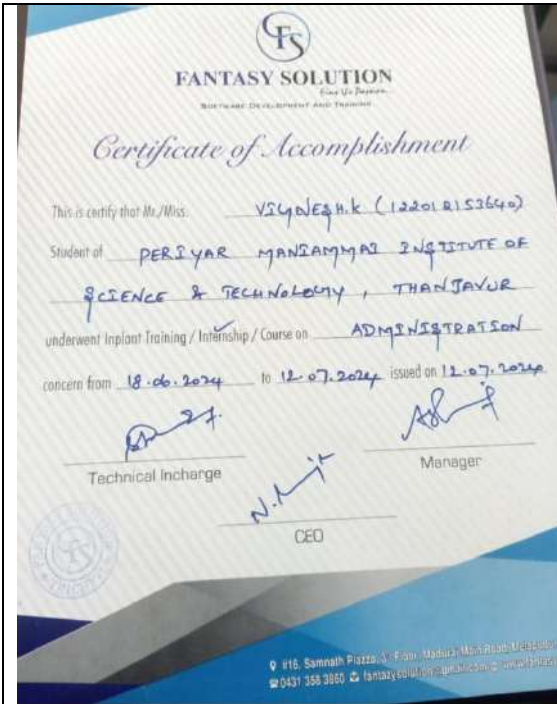 GFS
FANTASY SOLUTION
SOFTWARE DEVELOPMENT AND TRAINING
Certificate of Accomplishment
This is certify that Mr./Miss. VIGNESH.K (122012153640)
Student of PERIYAR MANIAMMAI INSTITUTE OF
SCIENCE & TECHNOLOGY, THANJAVUR
underwent Inplant Training / Internship / Course on ADMINISTRATION
concern from 18.06.2024 to 12.07.2024 issued on 12.07.2024
Technical Incharge
Manager
CEO
#16, Samnath Plazzo, Floor, Madurai Main Road, Melapudur
0431 358 3860 fantazysolution@gmail.com